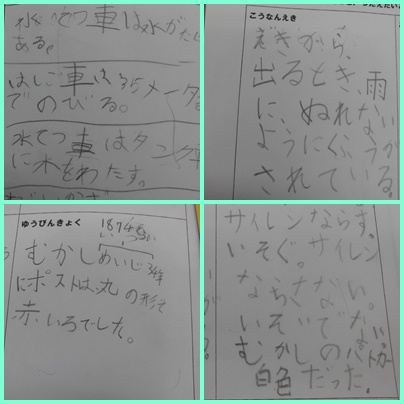 水てつ車は水がた
ある。
はしご車は35メータ
でのびる。
水てつ車はタンク車
に水をわたす。
こうなんえき
えきから、
出るとき、雨
に、ぬれない
ようにくふうが
されている。
ゆうびんきょく
1874
むかしめいじ
にポストは丸の形で
赤いろでした。
サイレンならす。
いそぐ。サイレン
ならさない。
いそいでない。
むかしのパトカー
白色だった。